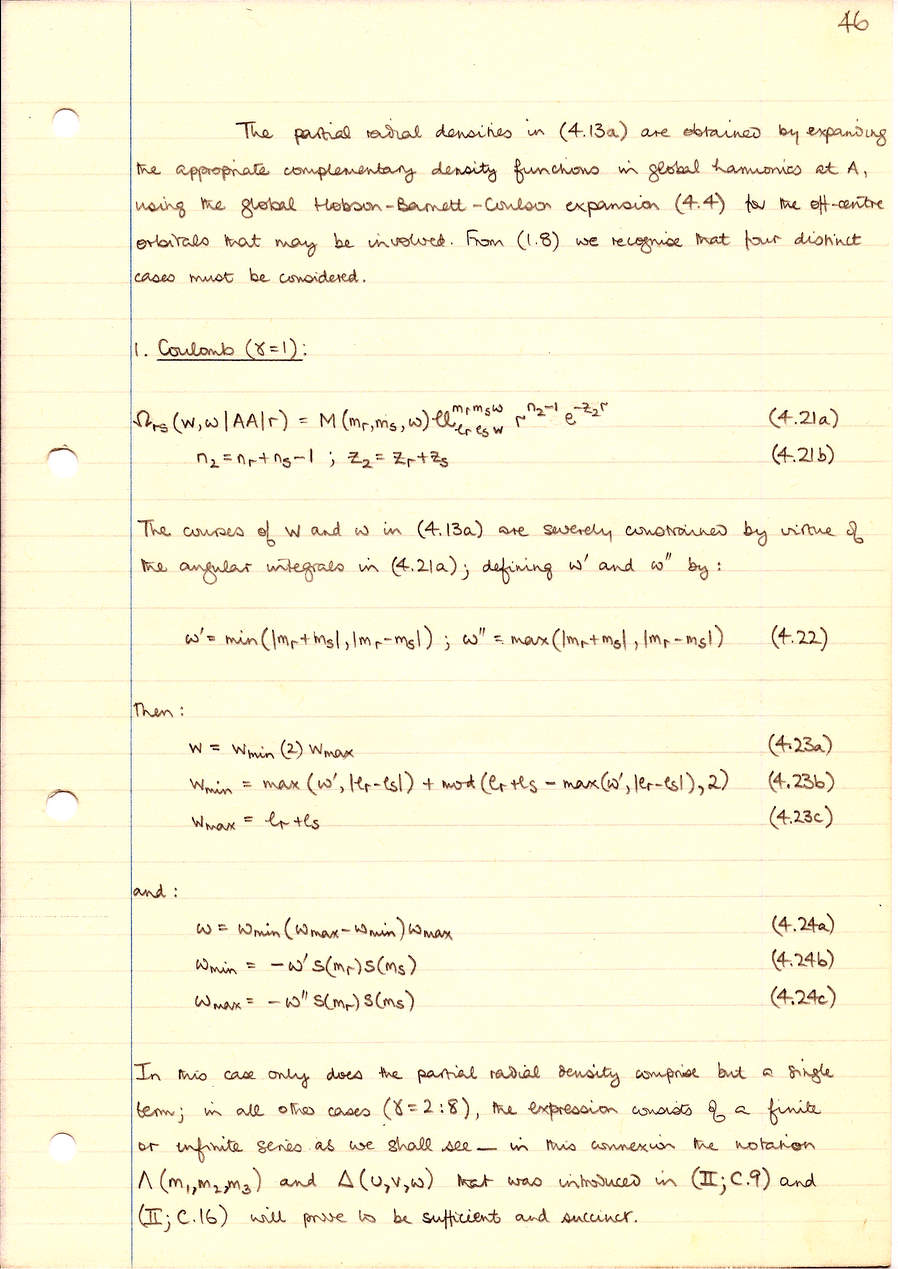 46
The partial radial densities in (4.13a) are obtained by expanding
the appropriate complementary density functions in global harmonics at A,
using the global Hobson-Barnett-Coulson expansion (4.4) for the off-centre
orbitals that may be involved. From (1.8) we recognise that four distinct
cases must be considered.
1. Coulomb (γ=1):
Ω_rs (W,ω|AA|r) = M(m_r,m_s,ω) 𝒰^{m_r m_s ω}_{l_r l_s W} r^{n_2-1} e^{-z_2 r} (4.21a)
n_2 = n_r + n_s - 1 ; z_2 = z_r + z_s (4.21b)
The courses of W and ω in (4.13a) are severely constrained by virtue of
the angular integrals in (4.21a); defining ω' and ω'' by:
ω' = min(|m_r+m_s|, |m_r-m_s|) ; ω'' = max(|m_r+m_s|, |m_r-m_s|) (4.22)
Then:
W = W_min (2) W_max (4.23a)
W_min = max(ω', |l_r-l_s|) + mod(l_r+l_s - max(ω', |l_r-l_s|), 2) (4.23b)
W_max = l_r + l_s (4.23c)
and:
ω = ω_min (ω_max - ω_min) ω_max (4.24a)
ω_min = -ω' S(m_r) S(m_s) (4.24b)
ω_max = -ω'' S(m_r) S(m_s) (4.24c)
In this case only does the partial radial density comprise but a single
term; in all other cases (γ=2:8), the expression consists of a finite
or infinite series as we shall see — in this connexion the notation
Λ(m_1,m_2,m_3) and Δ(u,v,w) that was introduced in (II; C.9) and
(II; C.16) will prove to be sufficient and succinct.